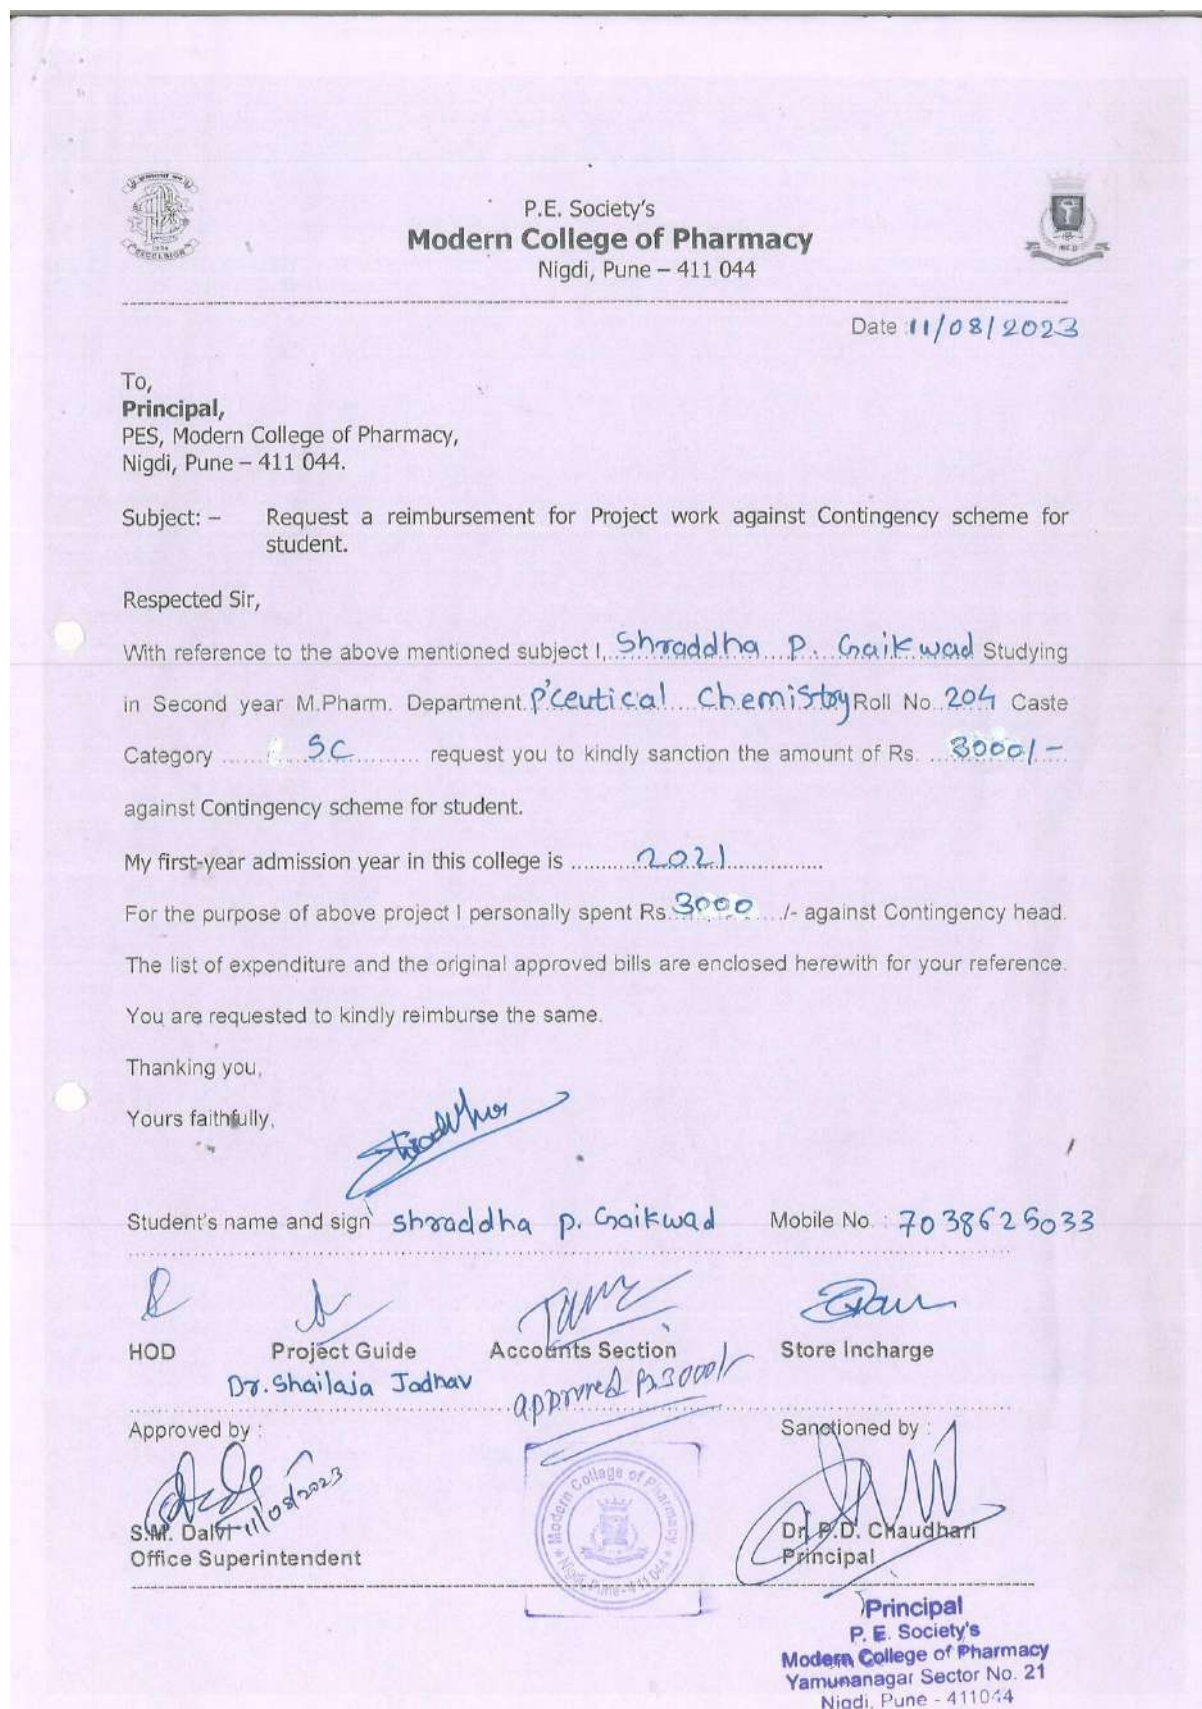 P.E. Society's
Modern College of Pharmacy
Nigdi, Pune – 411 044
EXCELSIOR
Date :11/08/2023
To,
Principal,
PES, Modern College of Pharmacy,
Nigdi, Pune – 411 044.
Subject: – Request a reimbursement for Project work against Contingency scheme for
student.
Respected Sir,
With reference to the above mentioned subject I, Shraddha P. Gaikwad Studying
in Second year M.Pharm. Department P'ceutical Chemistry Roll No. 204 Caste
Category ...... SC ......... request you to kindly sanction the amount of Rs. ...3000/-
against Contingency scheme for student.
My first-year admission year in this college is ........... 2021 ................
For the purpose of above project I personally spent Rs. 3000 .../- against Contingency head.
The list of expenditure and the original approved bills are enclosed herewith for your reference.
You are requested to kindly reimburse the same.
Thanking you,
Yours faithfully,
Shraddha
Student's name and sign shraddha p. Gaikwad Mobile No. : 7038625033
HOD Project Guide Accounts Section Store Incharge
Dr. Shailaja Jadhav approved Rs.3000/-
Approved by : Sanctioned by :
11/08/2023
S.M. Dalvi Dr. P.D. Chaudhari
Office Superintendent Principal
Modern College of Pharmacy
Nigdi, Pune-411 044
Principal
P. E. Society's
Modern College of Pharmacy
Yamunanagar Sector No. 21
Nigdi, Pune - 411044